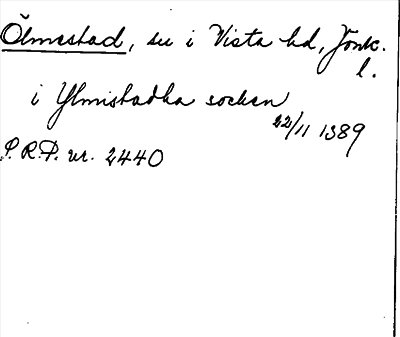 Ölmestad, sn i Vista hd, Jönk. l.
i Ylmistadha socken
22/11 1389
P.R.P. nr. 2440